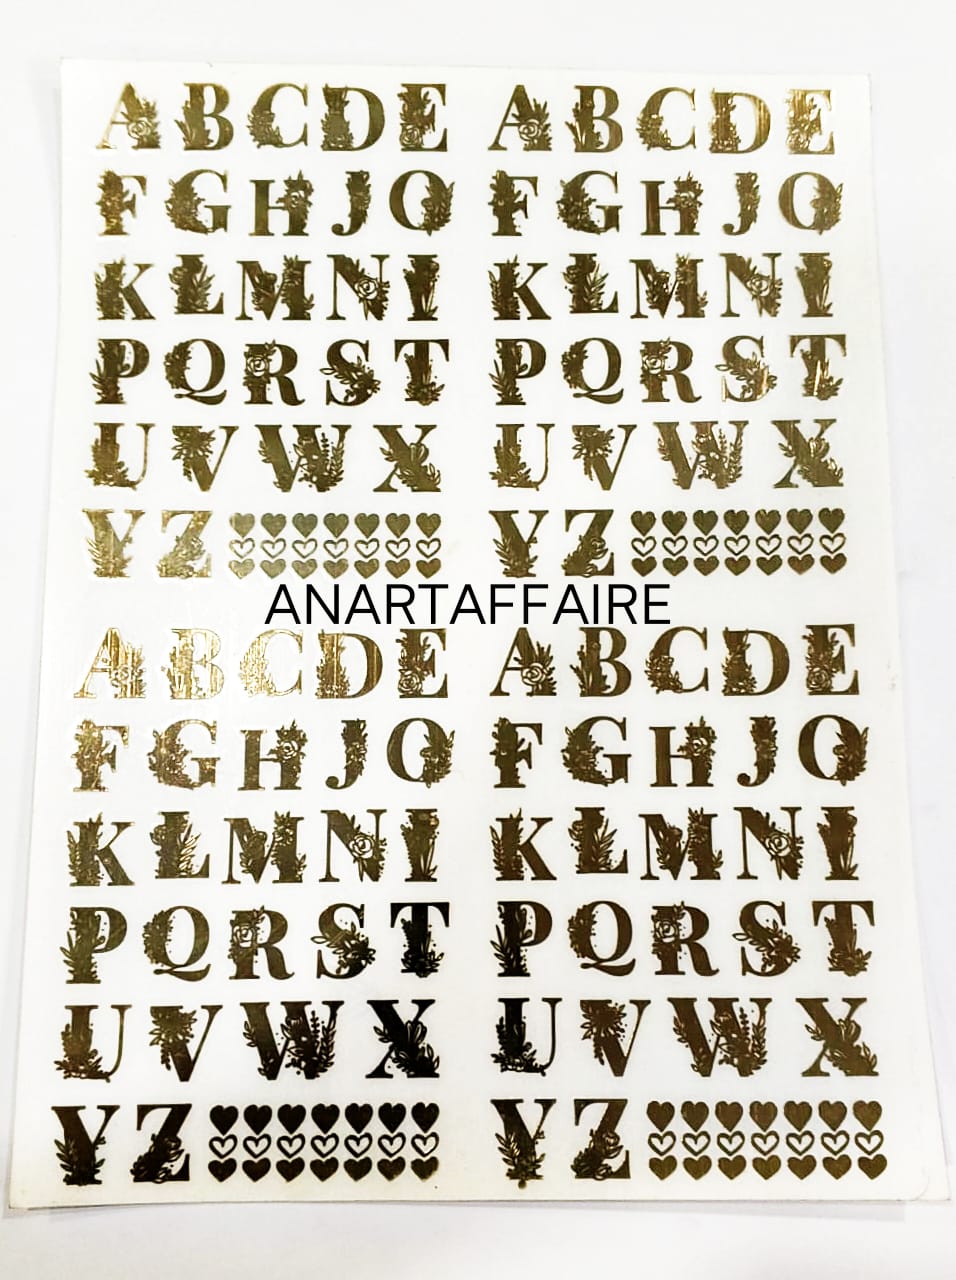 A B C D E A B C D E
F G H J O F G H J O
K L M N I K L M N I
P Q R S T P Q R S T
U V W X U V W X
Y Z Y Z
ANARTAFFAIRE
A B C D E A B C D E
F G H J O F G H J O
K L M N I K L M N I
P Q R S T P Q R S T
U V W X U V W X
Y Z Y Z